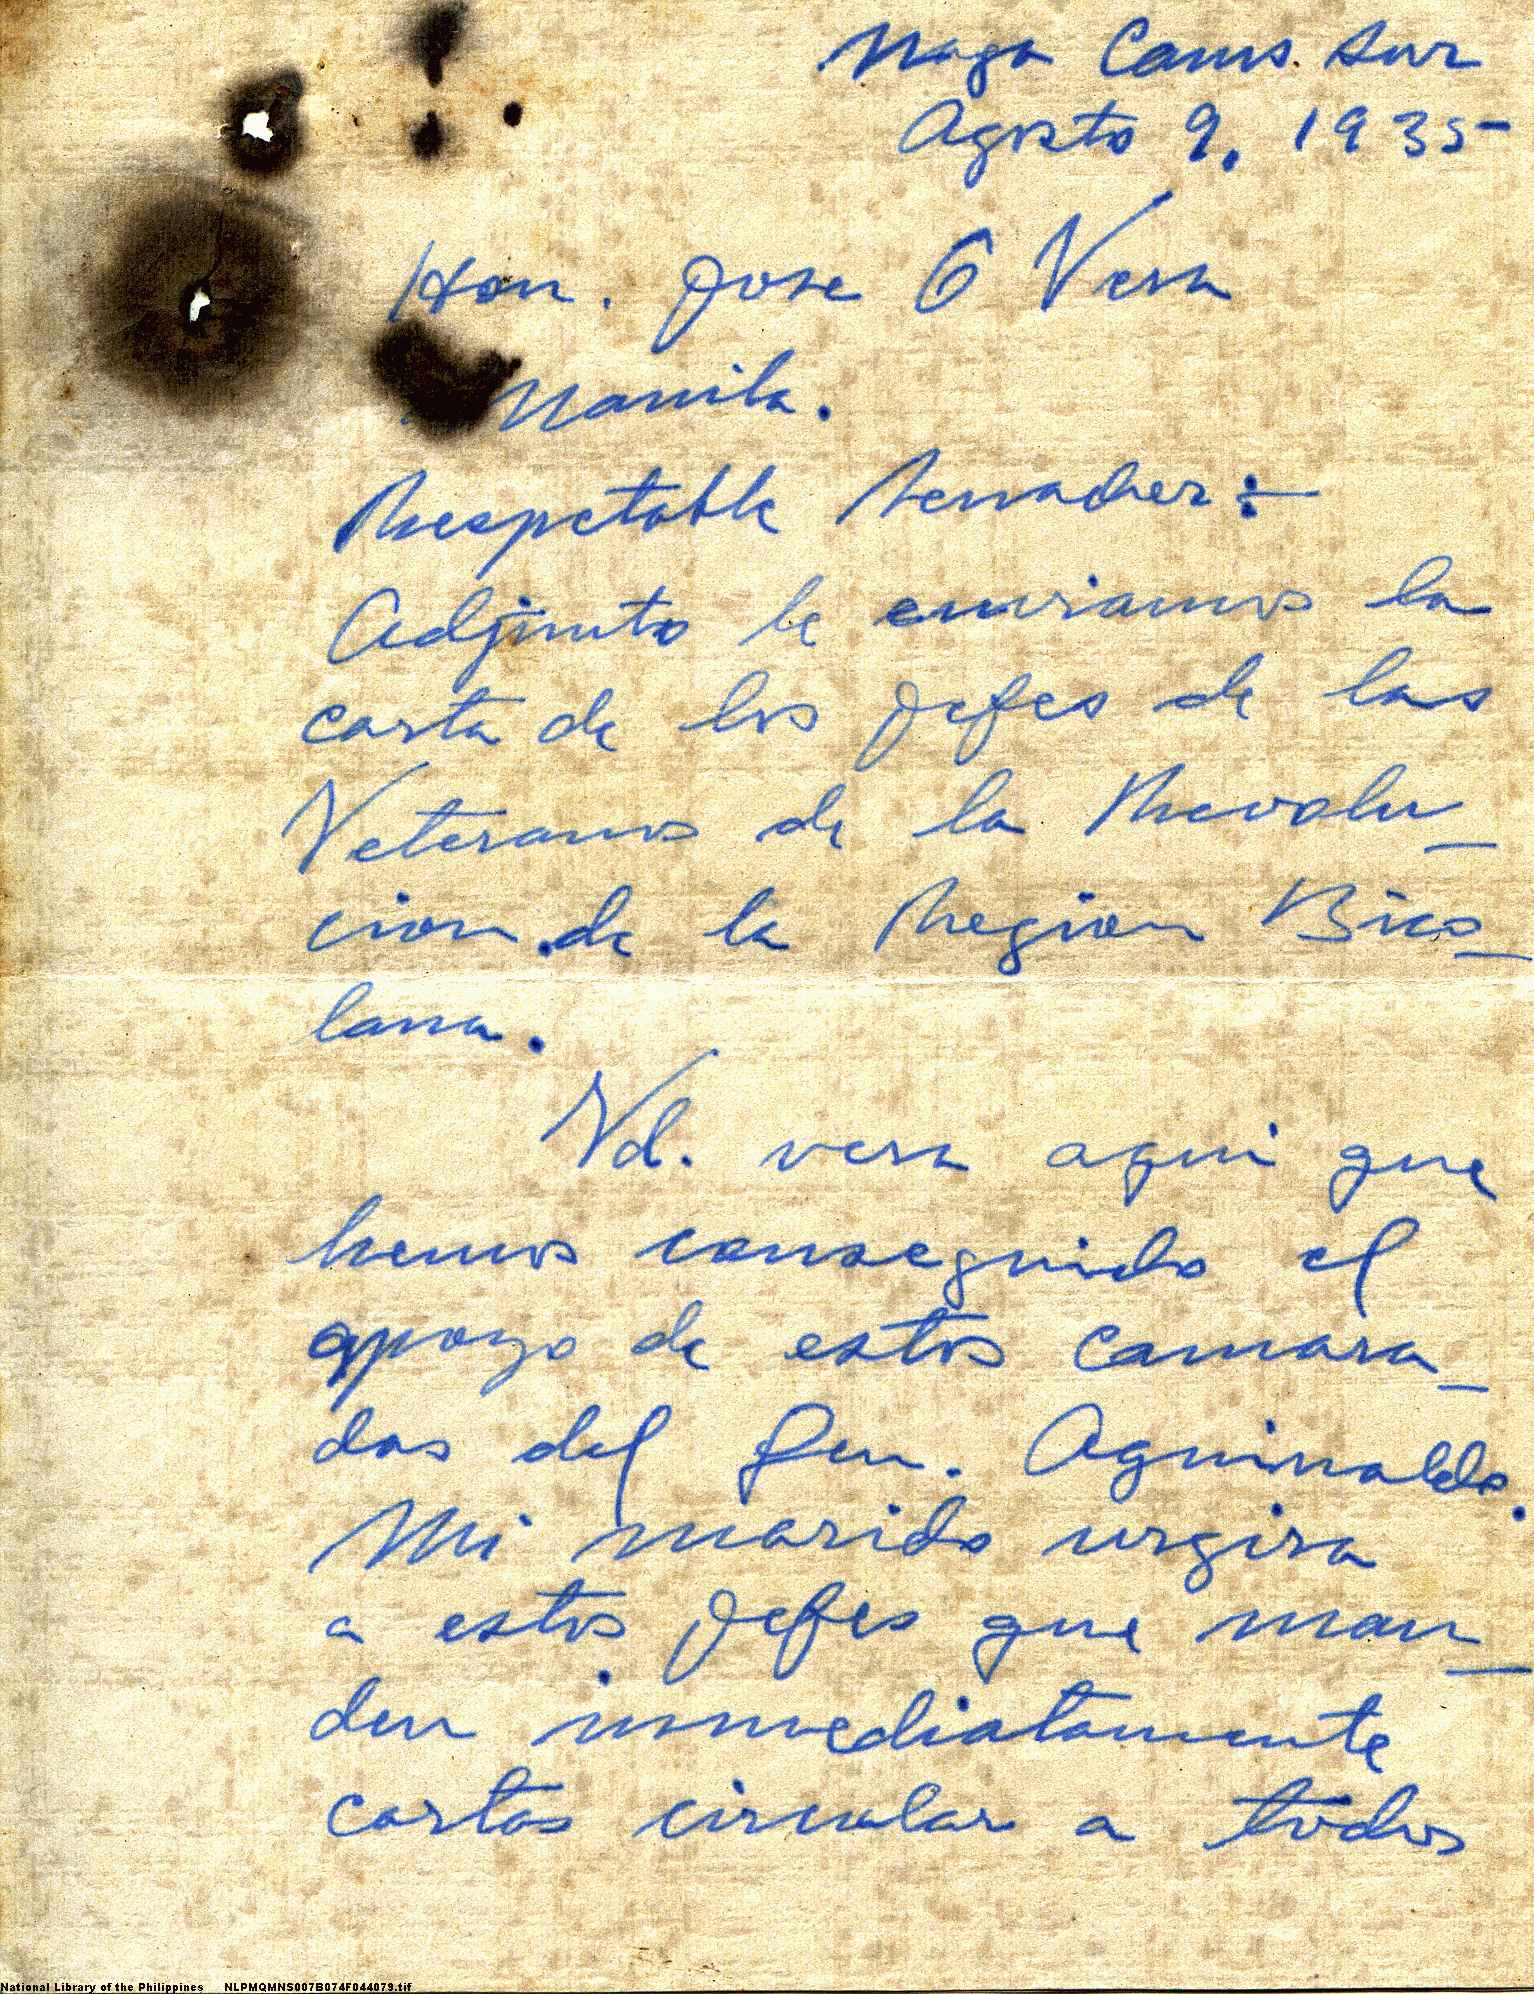 Naga Cams. Sur
Agosto 9, 1935
Hon. Jose O Vera
Manila.
Respetable Senador:
Adjunto le enviamos la
carta de los Jefes de las
Veteranos de la Revolu-
cion de la Region Bico-
lana.
Vd. vera aqui que
hemos conseguido el
apoyo de estos camara-
das del Gen. Aguinaldo.
Mi marido urgira
a estos Jefes que man-
den inmediatamente
cartas circular a todos
National Library of the Philippines NLPMQMNS007B074F044079.tif